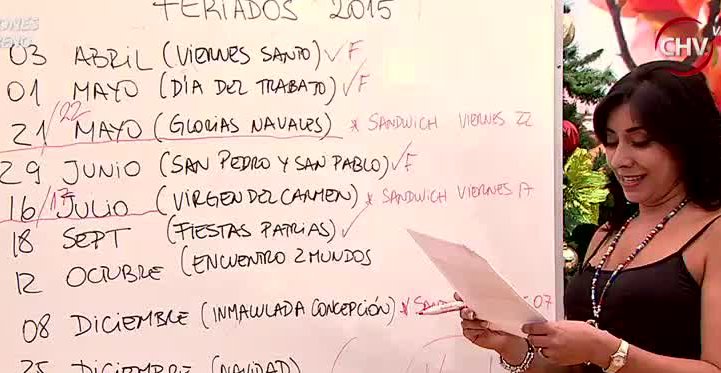 FERIADOS 2015
CHV
03 ABRIL (VIERNES SANTO) ✓ F
01 MAYO (DÍA DEL TRABAJO) ✓ F
21/22 MAYO (GLORIAS NAVALES) * SANDWICH VIERNES 22
29 JUNIO (SAN PEDRO Y SAN PABLO) ✓ F
16/17 JULIO (VIRGEN DEL CARMEN) * SANDWICH VIERNES 17
18 SEPT (FIESTAS PATRIAS) ✓
12 OCTUBRE (ENCUENTRO 2 MUNDOS
08 DICIEMBRE (INMACULADA CONCEPCIÓN) * 07
25 DICIEMBRE (NAVIDAD)